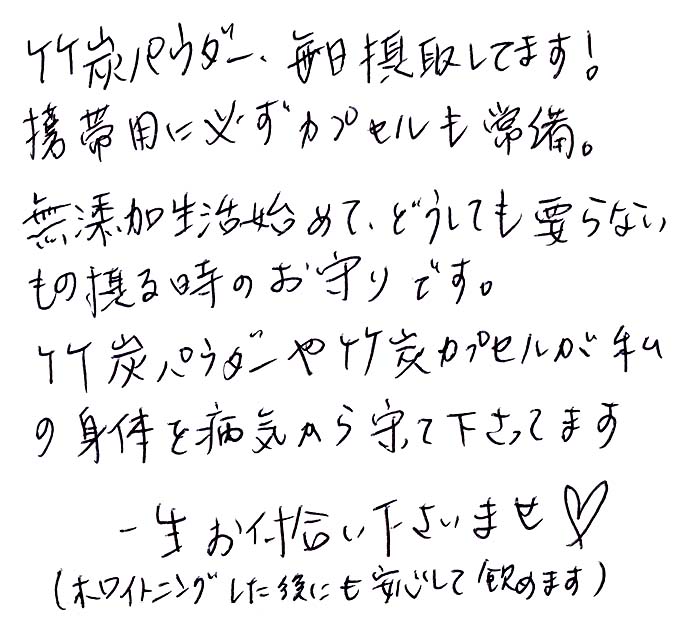 竹炭パウダー、毎日摂取してます!
携帯用に必ずカプセルも常備。
無添加生活始めて、どうしても要らない
もの摂る時のお守りです。
竹炭パウダーや竹炭カプセルが私
の身体を病気から守って下さってます
一生お付合い下さいませ♡
(ホワイトニングした後にも安心して飲めます)